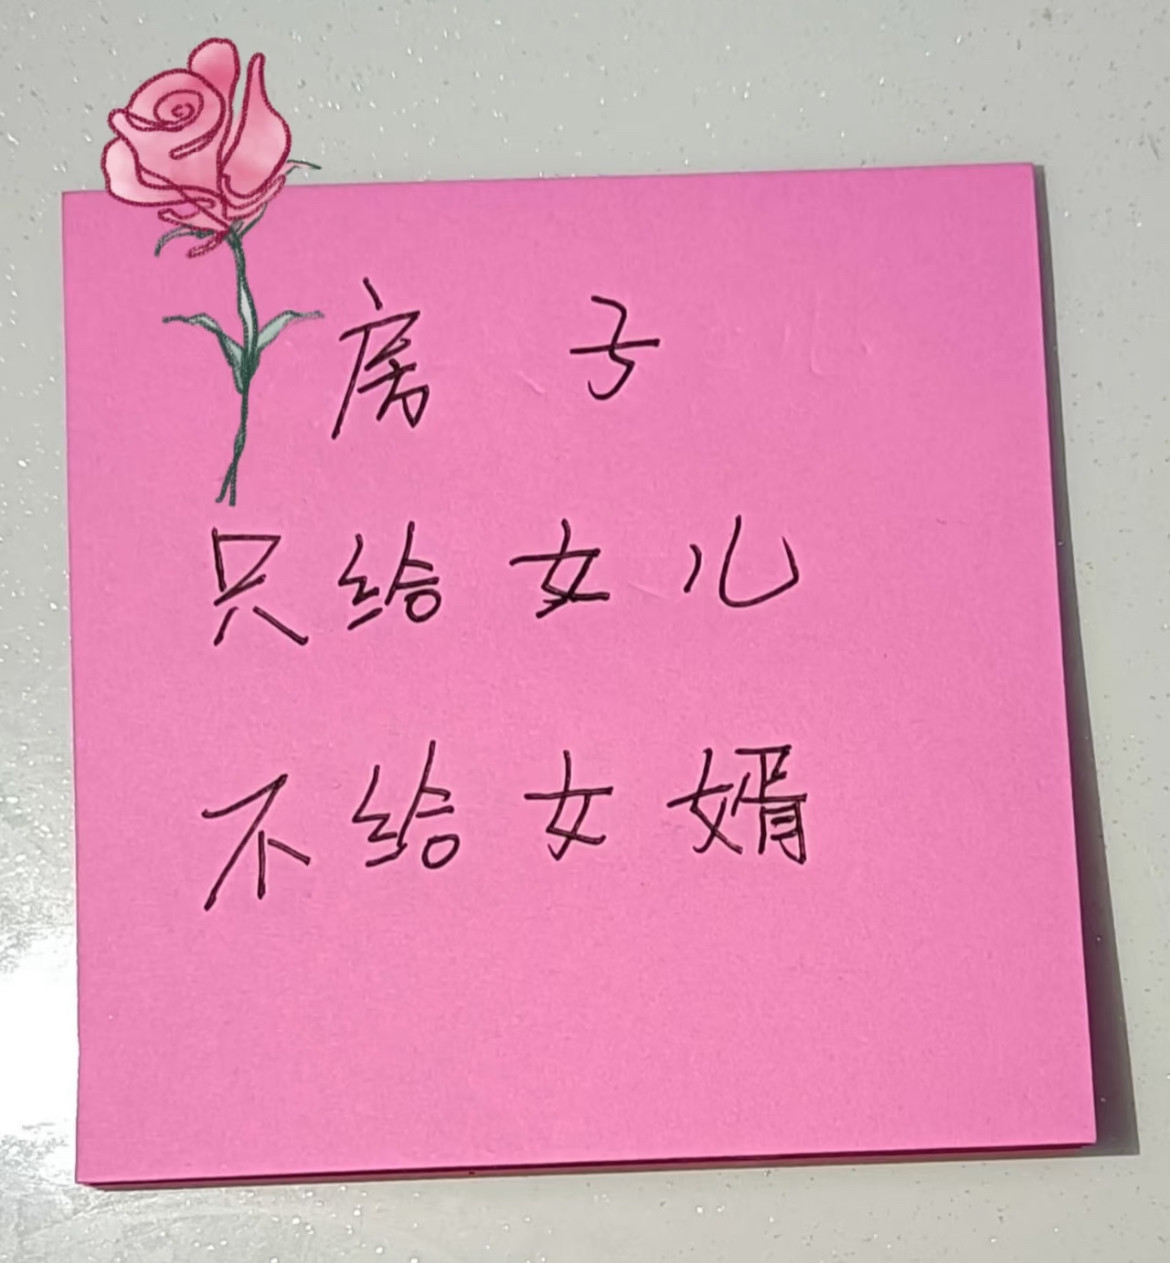 房子
只给女儿
不给女婿